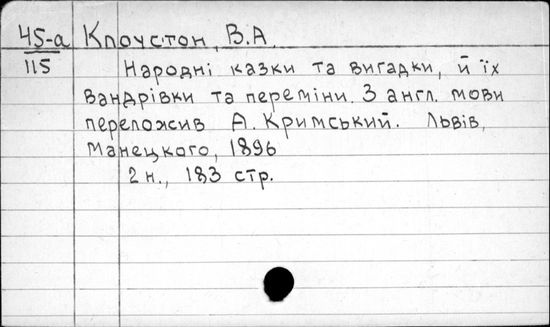 45-а Клоустон, В.А.
115 Народні казки та вигадки, й їх
вандрівки та переміни. З англ. мови
переложив А. Кримський. Львів,
Манецкого, 1896
2 н., 183 стр.